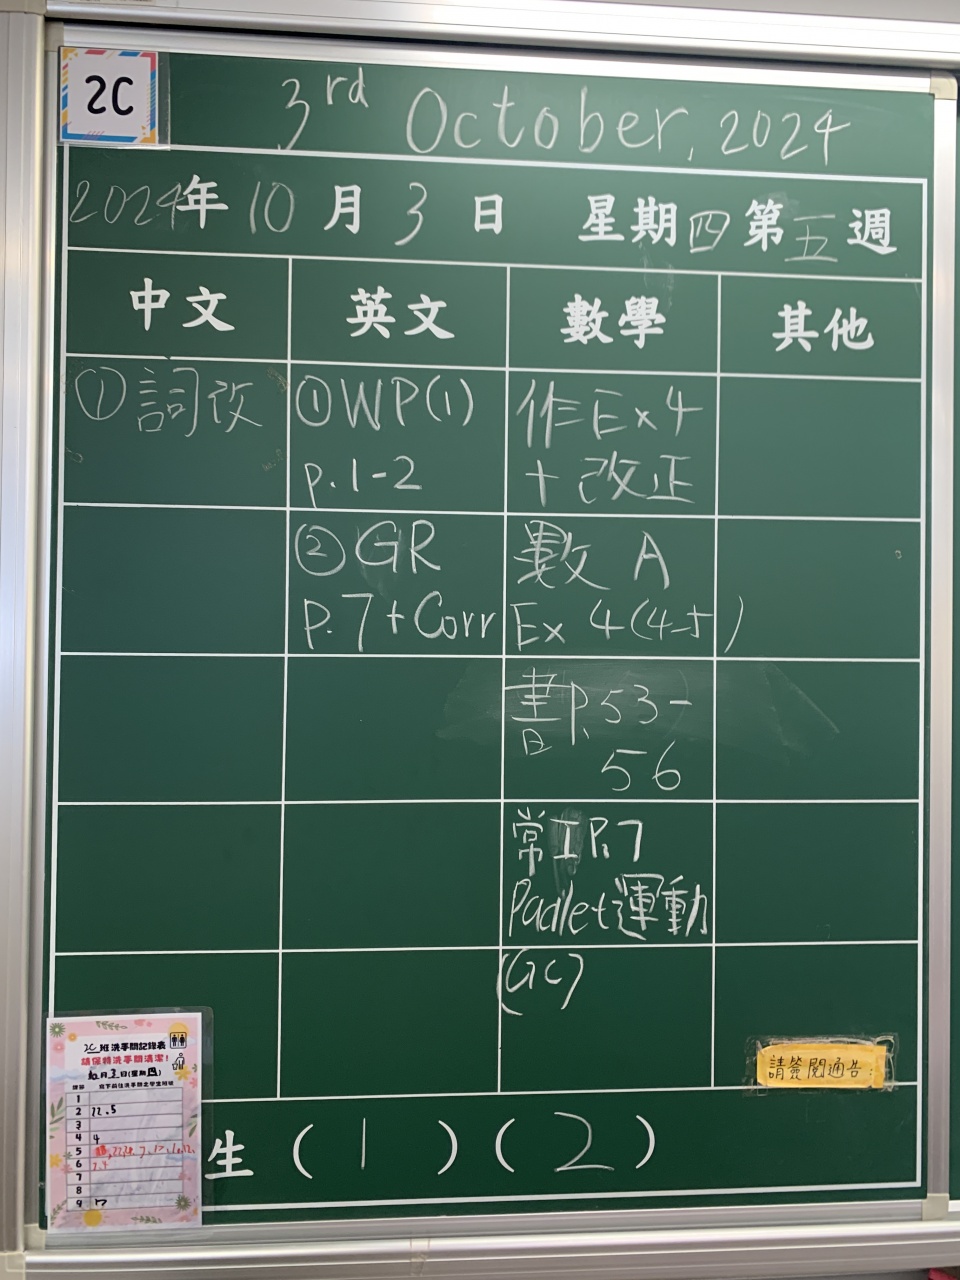 2C
3rd October, 2024
2024年10月3日 星期四第五週
中文 英文 數學 其他
①詞改
①WP(1)
p.1-2
②GR
p.7+Corr
作Ex4
+改正
數A
Ex 4(4-5)
書P.53-
56
常IP.7
Padlet運動
(GC)
請簽閱通告:
生(1)(2)
2C班洗手間記錄表
請保持洗手間清潔!
10月3日(星期四)
1
2 22.5
3
4 4
5
6 7.4
7
8
9 17